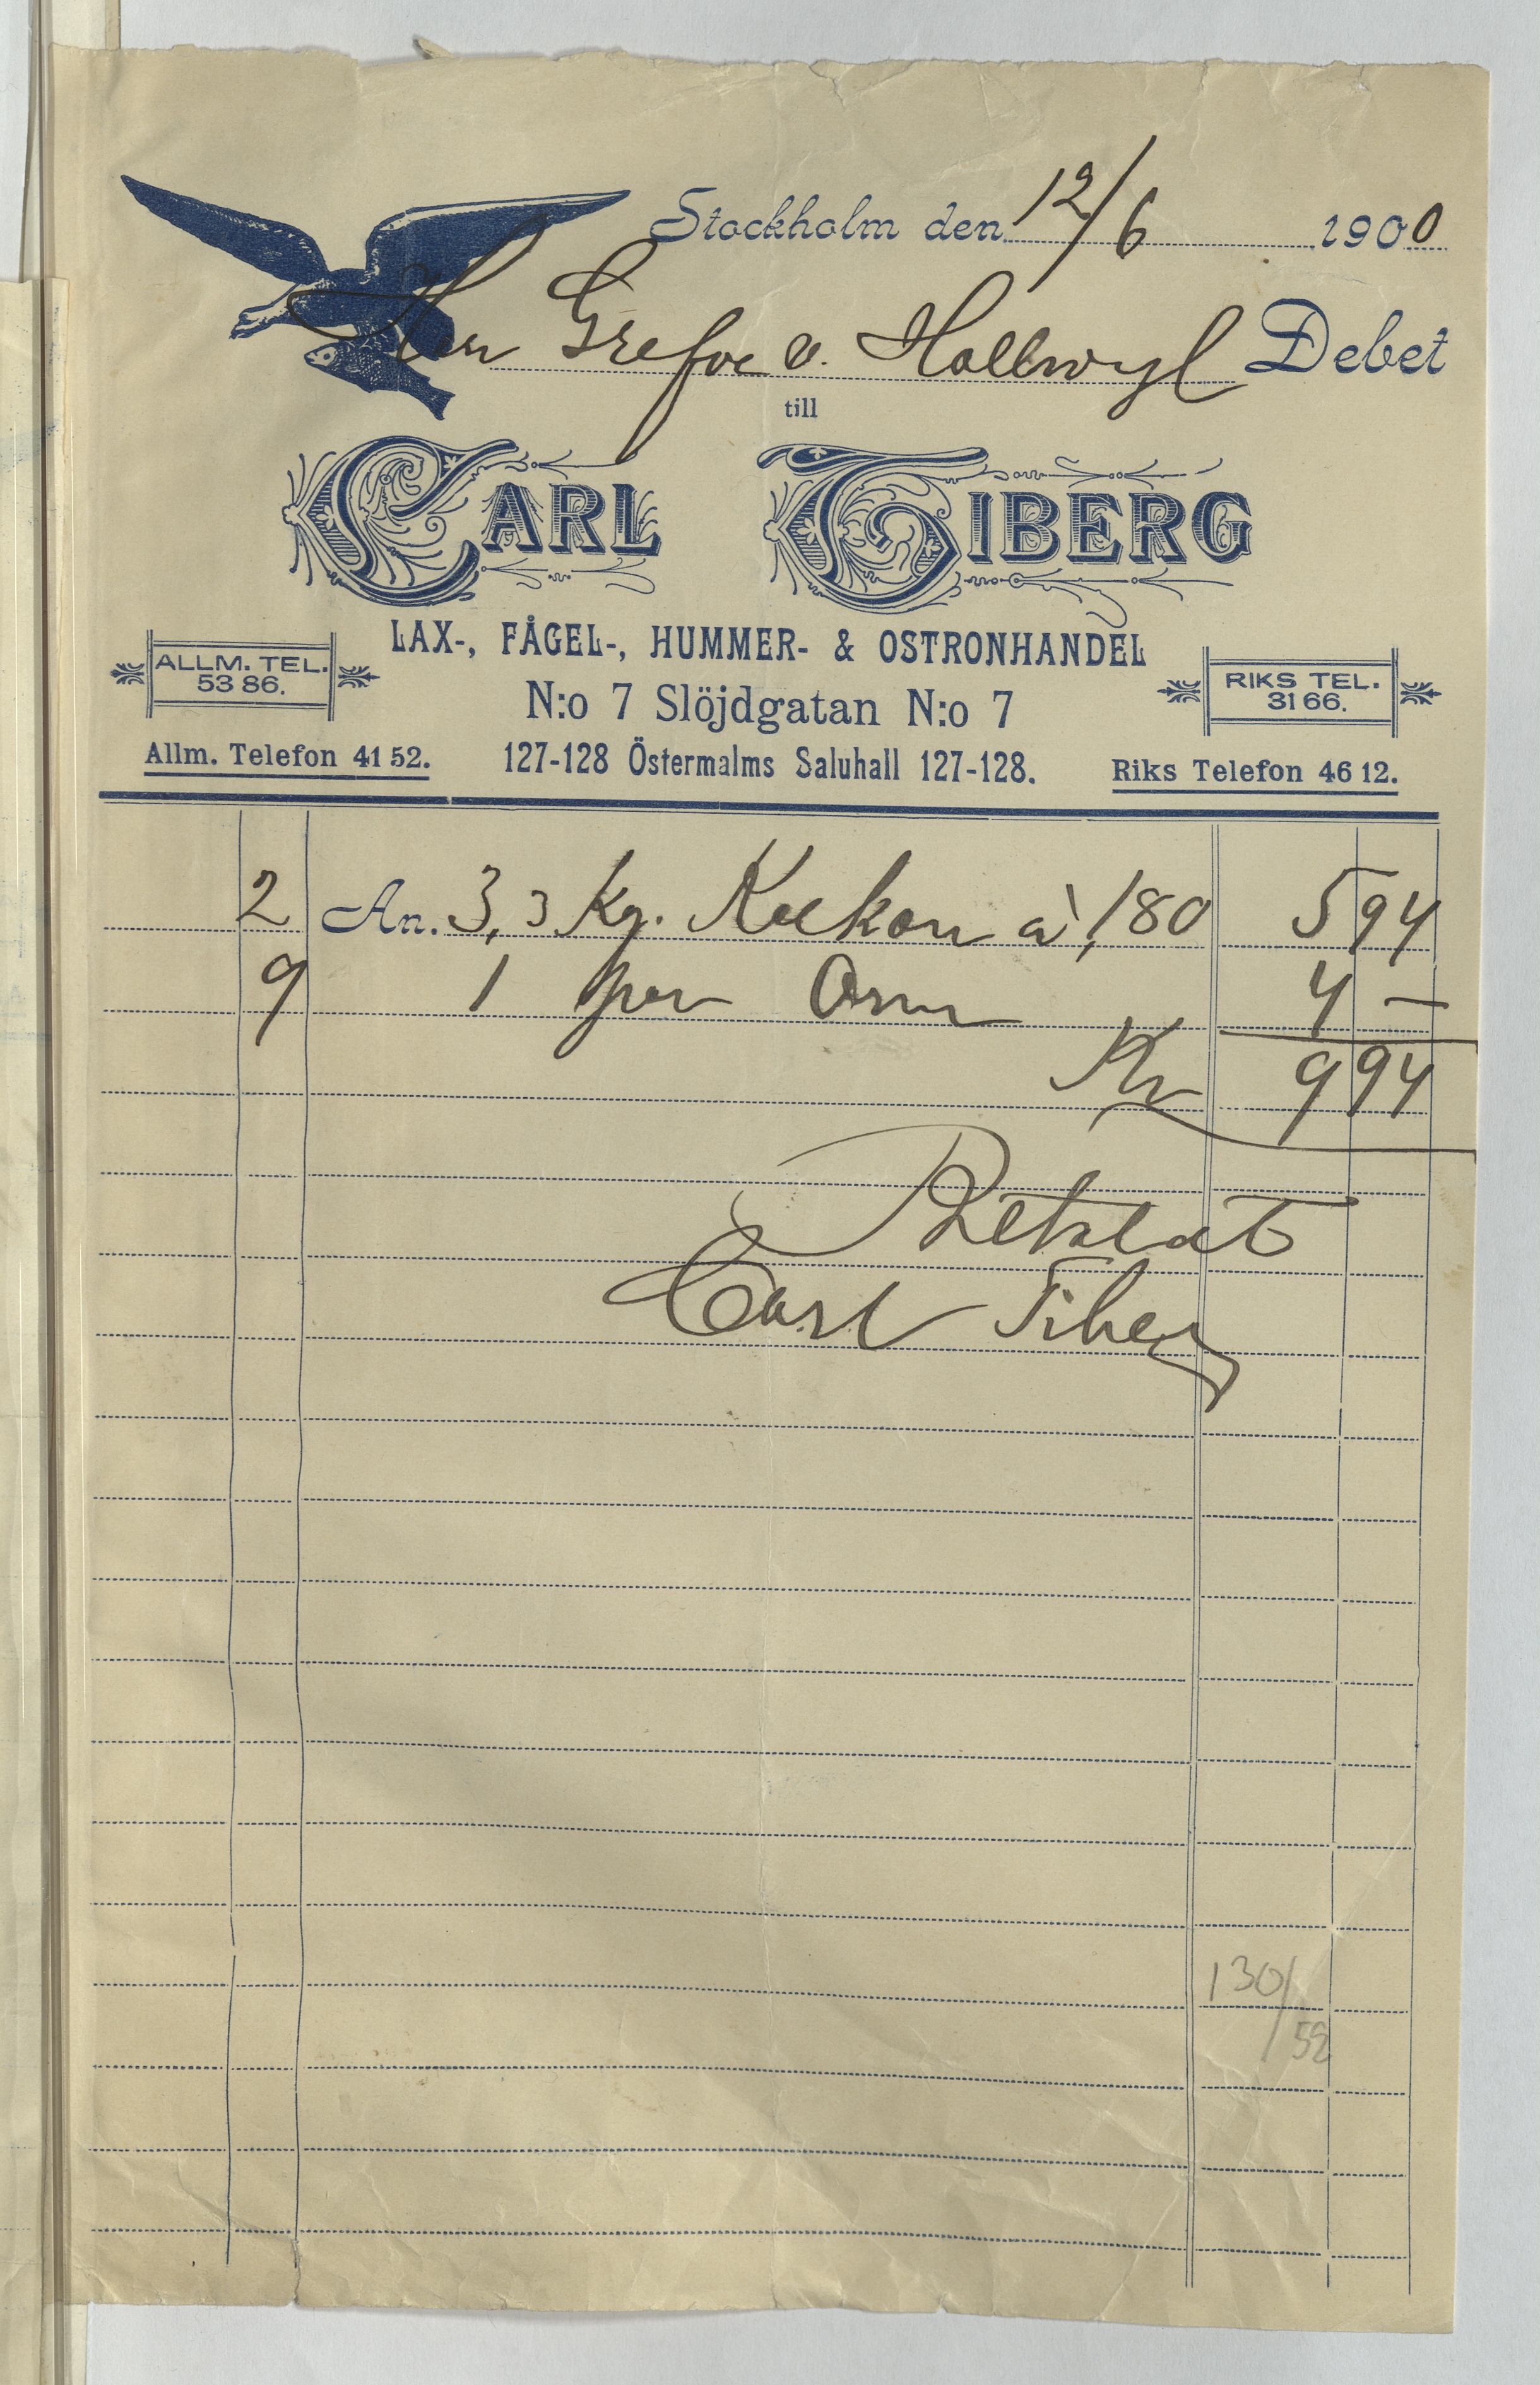 Stockholm den 12/6 1900
Herr Grefve v. Hallwyl Debet
till
CARL TIBERG
LAX-, FÅGEL-, HUMMER- & OSTRONHANDEL
ALLM. TEL. 53 86.
RIKS TEL. 31 66.
N:o 7 Slöjdgatan N:o 7
Allm. Telefon 41 52. 127-128 Östermalms Saluhall 127-128. Riks Telefon 46 12.
2 An. 3,3 Kg. Kalkon à 1,80 5 94
9 1 par 4 —
Kr 9 94
Betalat
Carl Tiberg
130/52